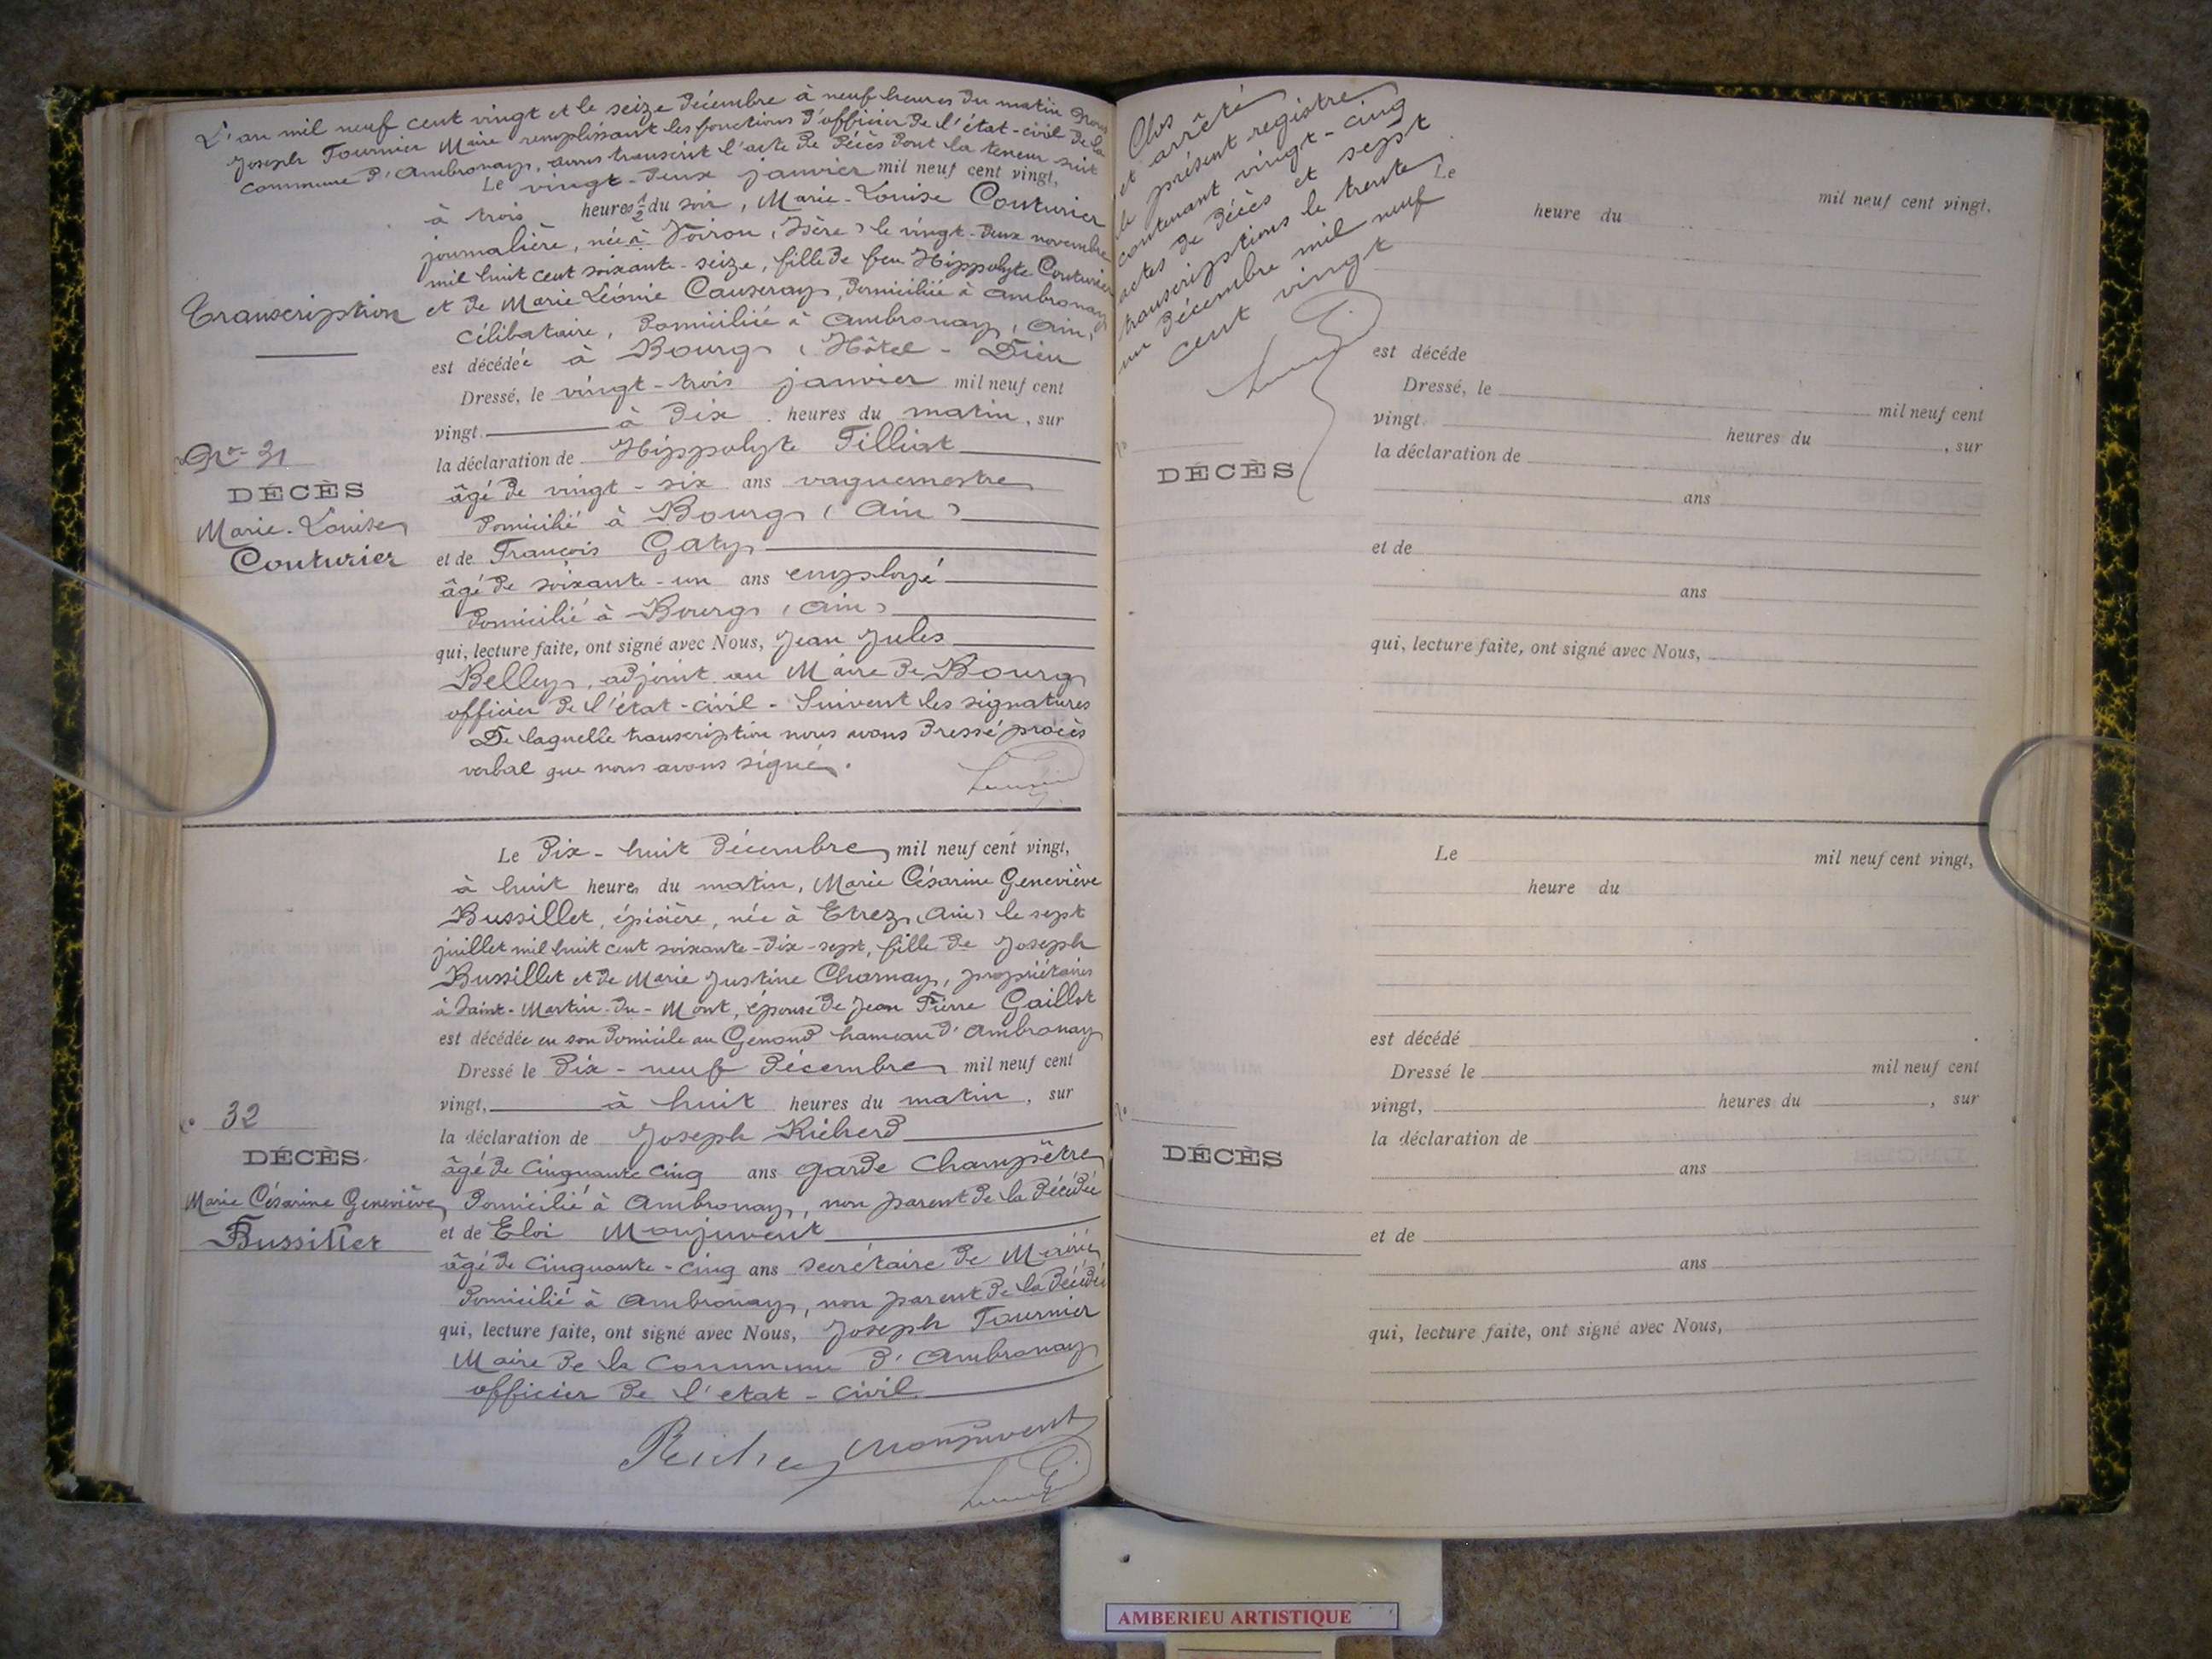 L'an mil neuf cent vingt et le seize Décembre à neuf heures du matin Nous
Joseph Tournier Maire remplissant les fonctions d'officier de l'état-civil de la
commune d'Ambronay, avons transcrit l'acte de décès dont la teneur suit
Le vingt-deux janvier mil neuf cent vingt,
à trois heures ½ du soir, Marie-Louise Couturier
journalière, née à Voiron (Isère) le vingt-deux novembre
mil huit cent soixante-seize, fille de feu Hippolyte Couturier
et de Marie Léonie Causeray, domiciliée à Ambronay
célibataire, domiciliée à Ambronay (Ain)
est décédée à Bourg (Hôtel-Dieu
Dressé, le vingt-trois janvier mil neuf cent
vingt. à dix heures du matin, sur
la déclaration de Hippolyte Tilliat
âgé de vingt-six ans vaguemestre
domicilié à Bourg (Ain)
et de François Gaty
âgé de soixante-un ans employé
domicilié à Bourg (Ain)
qui, lecture faite, ont signé avec Nous, Jean Jules
Belley, adjoint au Maire de Bourg
officier de l'état-civil - Suivent les signatures
De laquelle transcription nous avons dressé procès
verbal que nous avons signé.
Transcription
No 31
DÉCÈS
Marie-Louise
Couturier
Le dix-huit Décembre mil neuf cent vingt,
à huit heures du matin, Marie Césarine Geneviève
Bussillet, épicière, née à Etrez (Ain) le sept
juillet mil huit cent soixante-dix-sept, fille de Joseph
Bussillet et de Marie Justine Charnay, propriétaires
à Saint-Martin-du-Mont, épouse de Jean Pierre Gaillot
est décédée en son domicile au Genoud hameau d'Ambronay
Dressé le dix-neuf Décembre mil neuf cent
vingt, à huit heures du matin, sur
la déclaration de Joseph Richerd
âgé de Cinquante cinq ans garde Champêtre
domicilié à Ambronay, non parent de la décédée
et de Eloi Monjuvent
âgé de Cinquante-cinq ans secrétaire de Mairie
domicilié à Ambronay, non parent de la décédée
qui, lecture faite, ont signé avec Nous, Joseph Tournier
Maire de la Commune d'Ambronay
officier de l'etat-civil
Monjuvent
32
DÉCÈS.
Marie Césarine Geneviève
Bussillet
Clos
et arrêté
le présent registre
contenant vingt-cinq
actes de décès et sept
transcriptions le trente
un décembre mil neuf
cent vingt
Le
mil neuf cent vingt,
heure du
est décédé
Dressé, le mil neuf cent
vingt. heures du , sur
la déclaration de
DÉCÈS
ans
et de
ans
qui, lecture faite, ont signé avec Nous,
Le mil neuf cent vingt,
heure du
est décédé
Dressé le mil neuf cent
vingt, heures du , sur
la déclaration de
DÉCÈS
ans
et de
ans
qui, lecture faite, ont signé avec Nous,
AMBERIEU ARTISTIQUE